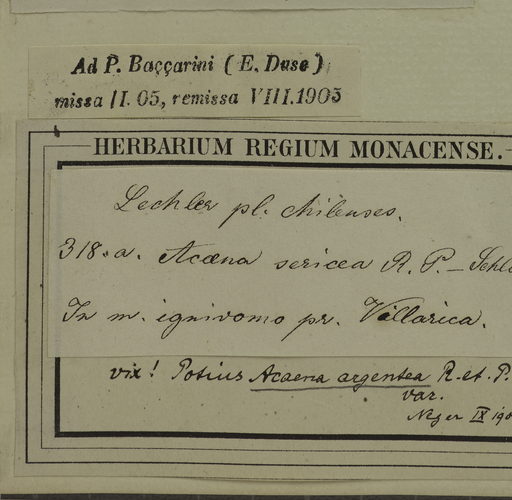 Ad P. Baççarini (E. Duse)
missa II. 05, remissa VIII.1905
HERBARIUM REGIUM MONACENSE.
Lechler pl. chilenses.
318.a. Acaena sericea R. P. – Schl
In m. ignivomo pr. Villarica.
vix! Potius Acaena argentea R. et. P.
var.
Neger IX 190